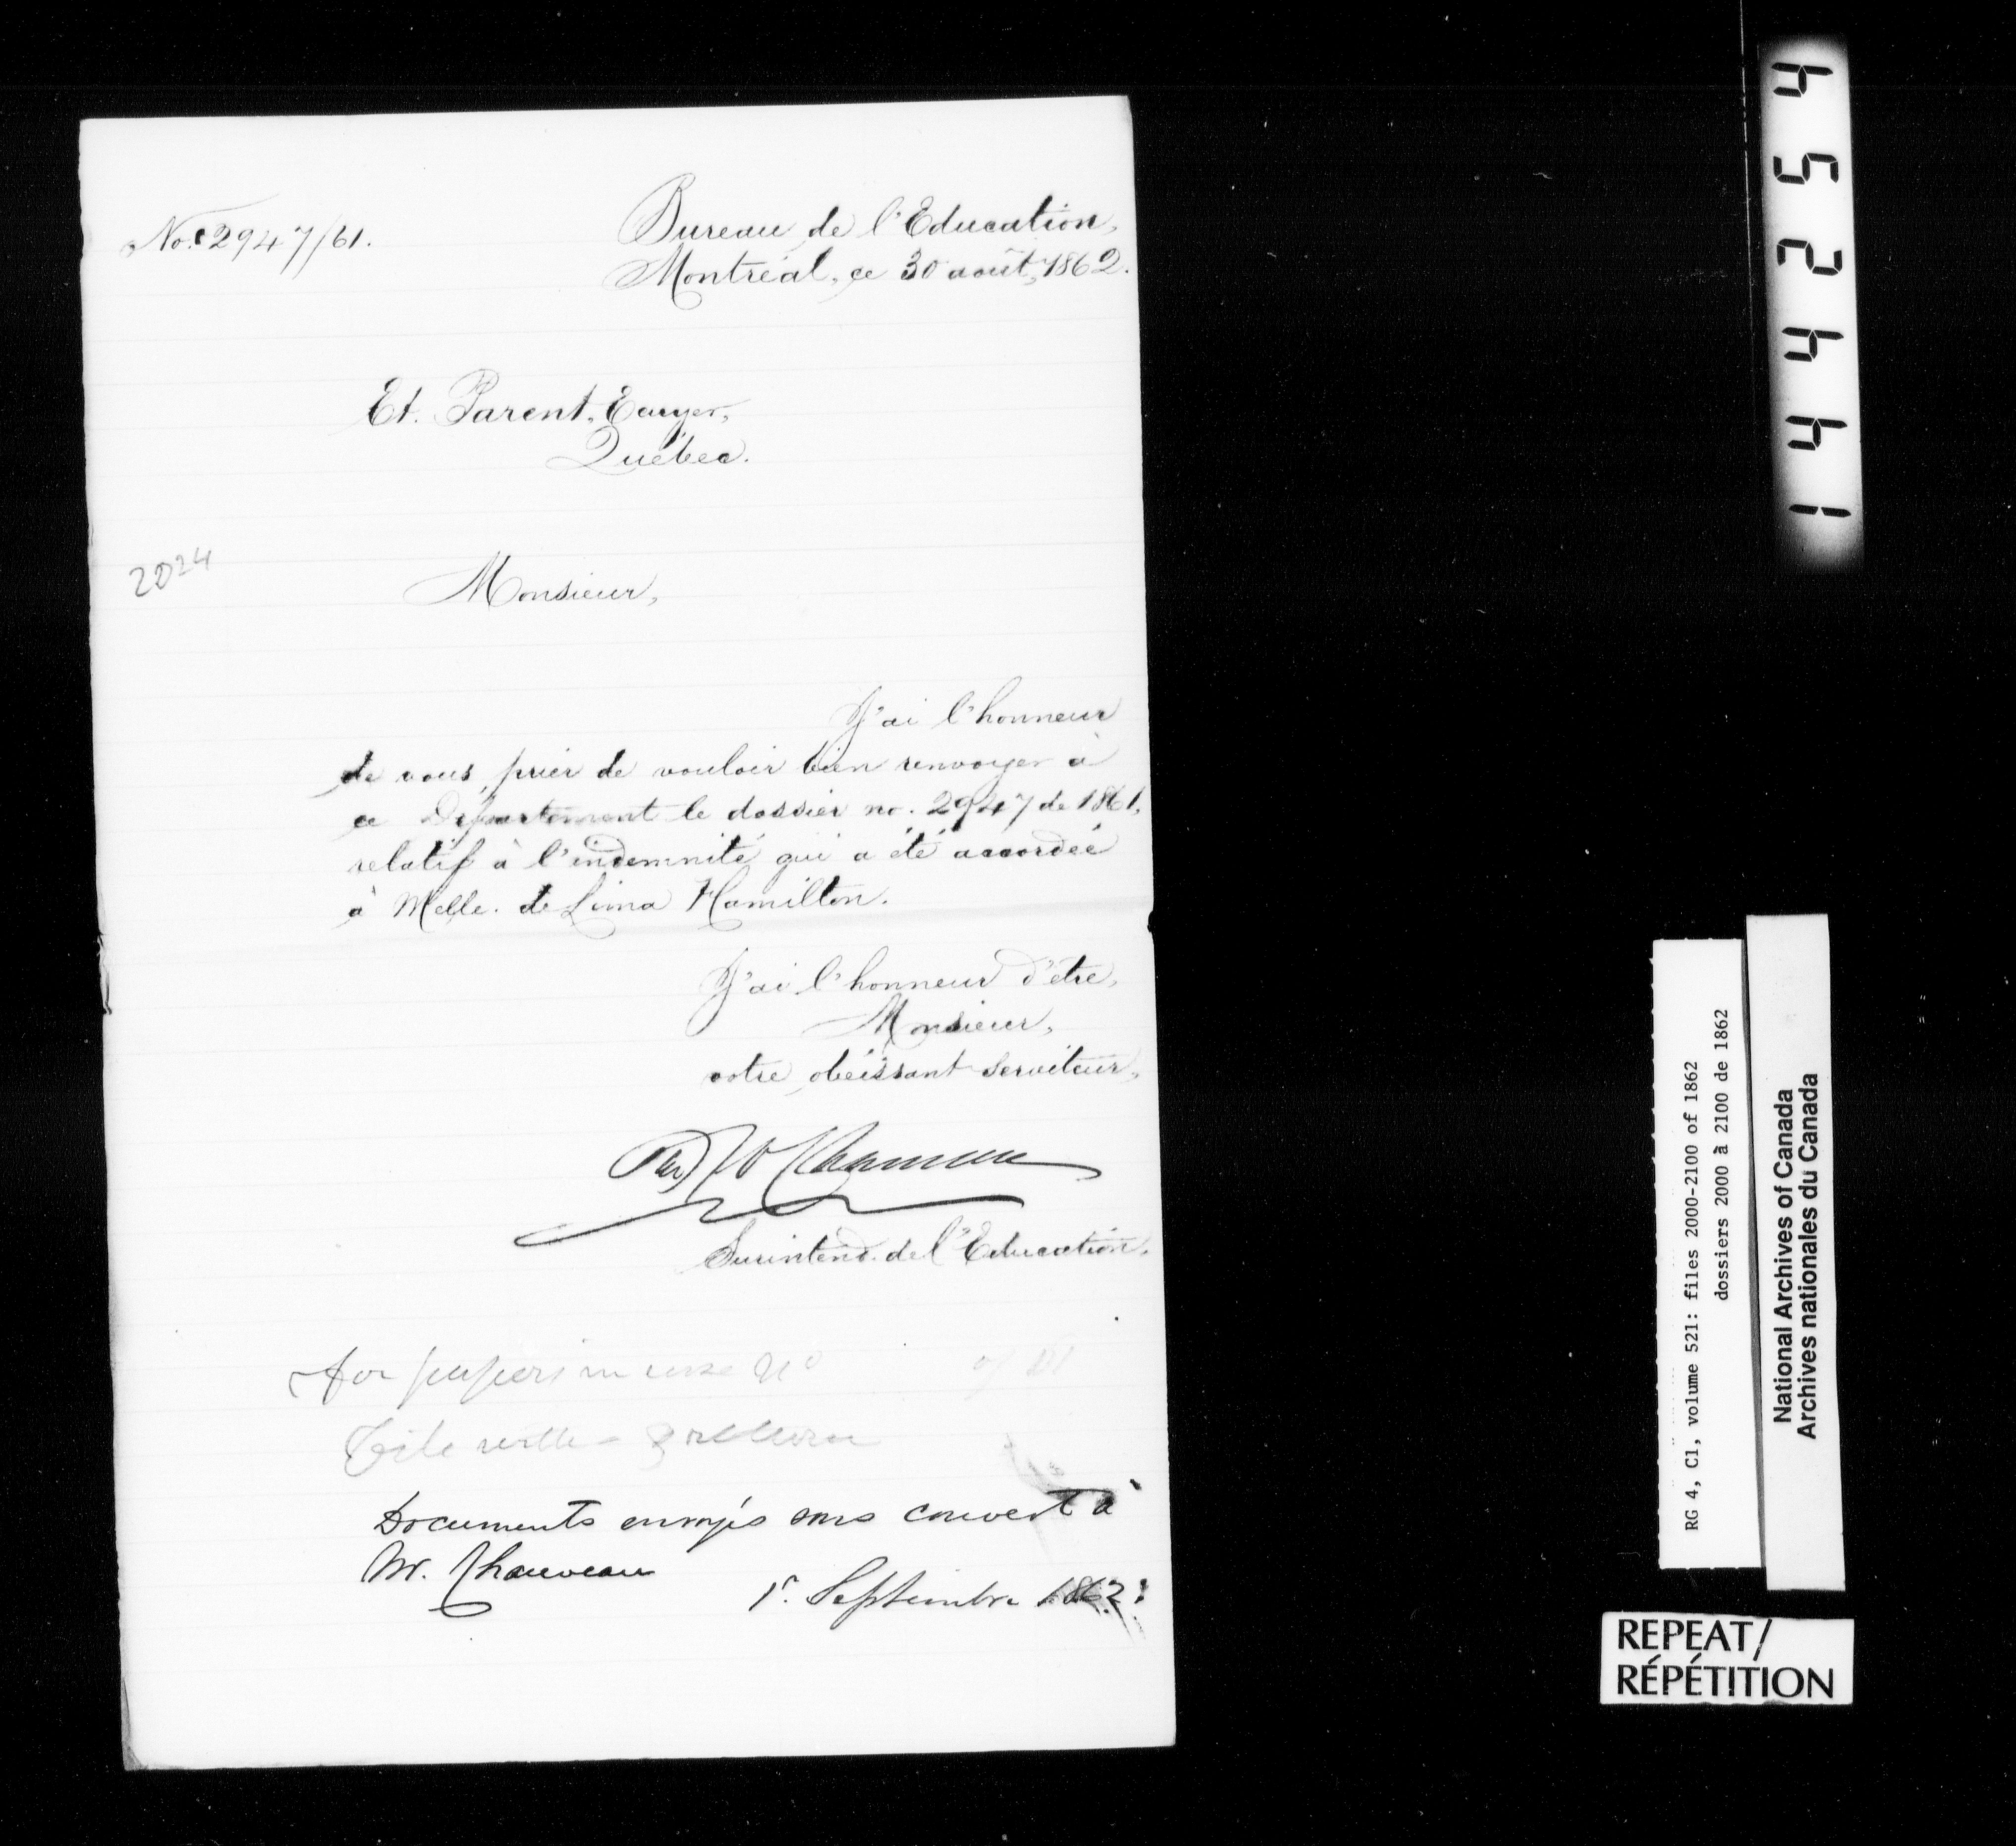 No. 2947/61.
Bureau de l'Education,
Montréal, ce 30 août, 1862.
Et. Parent, Ecuyer,
Québec.
2024
Monsieur,
J'ai l'honneur
de vous prier de vouloir bien renvoyer à
ce Département le dossier no. 2947 de 1861,
relatif à l'indemnité qui a été accordée
à Melle. de Lima Hamilton.
J'ai l'honneur d'être,
Monsieur,
votre obéissant serviteur,
Chauveau
Surintend. de l'Education.
For papers in case No of 61
File
Documents envoyés sous couvert à
Mr. Chauveau
1r. Septembre 1862.
144254
RG 4, C1, volume 521: files 2000-2100 of 1862
dossiers 2000 à 2100 de 1862
National Archives of Canada
Archives nationales du Canada
REPEAT/
RÉPÉTITION